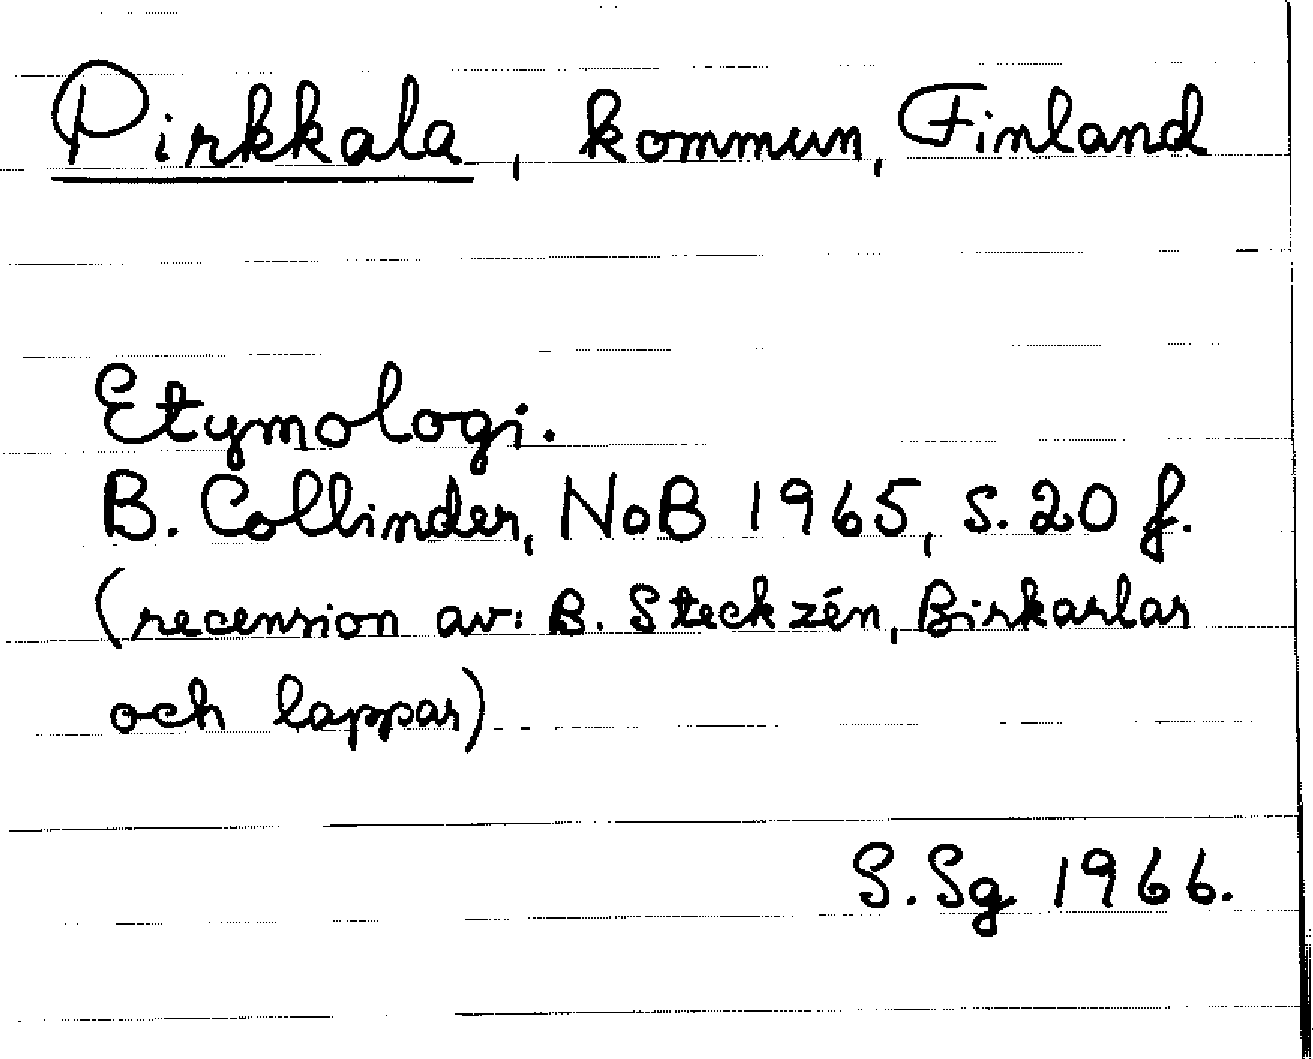 Pirkkala, kommun, Finland
Etymologi.
B. Collinder, NoB 1965, s. 20 f.
(recension av: B. Steckzén, Birkarlar
och lappar)
S. Sg 1966.